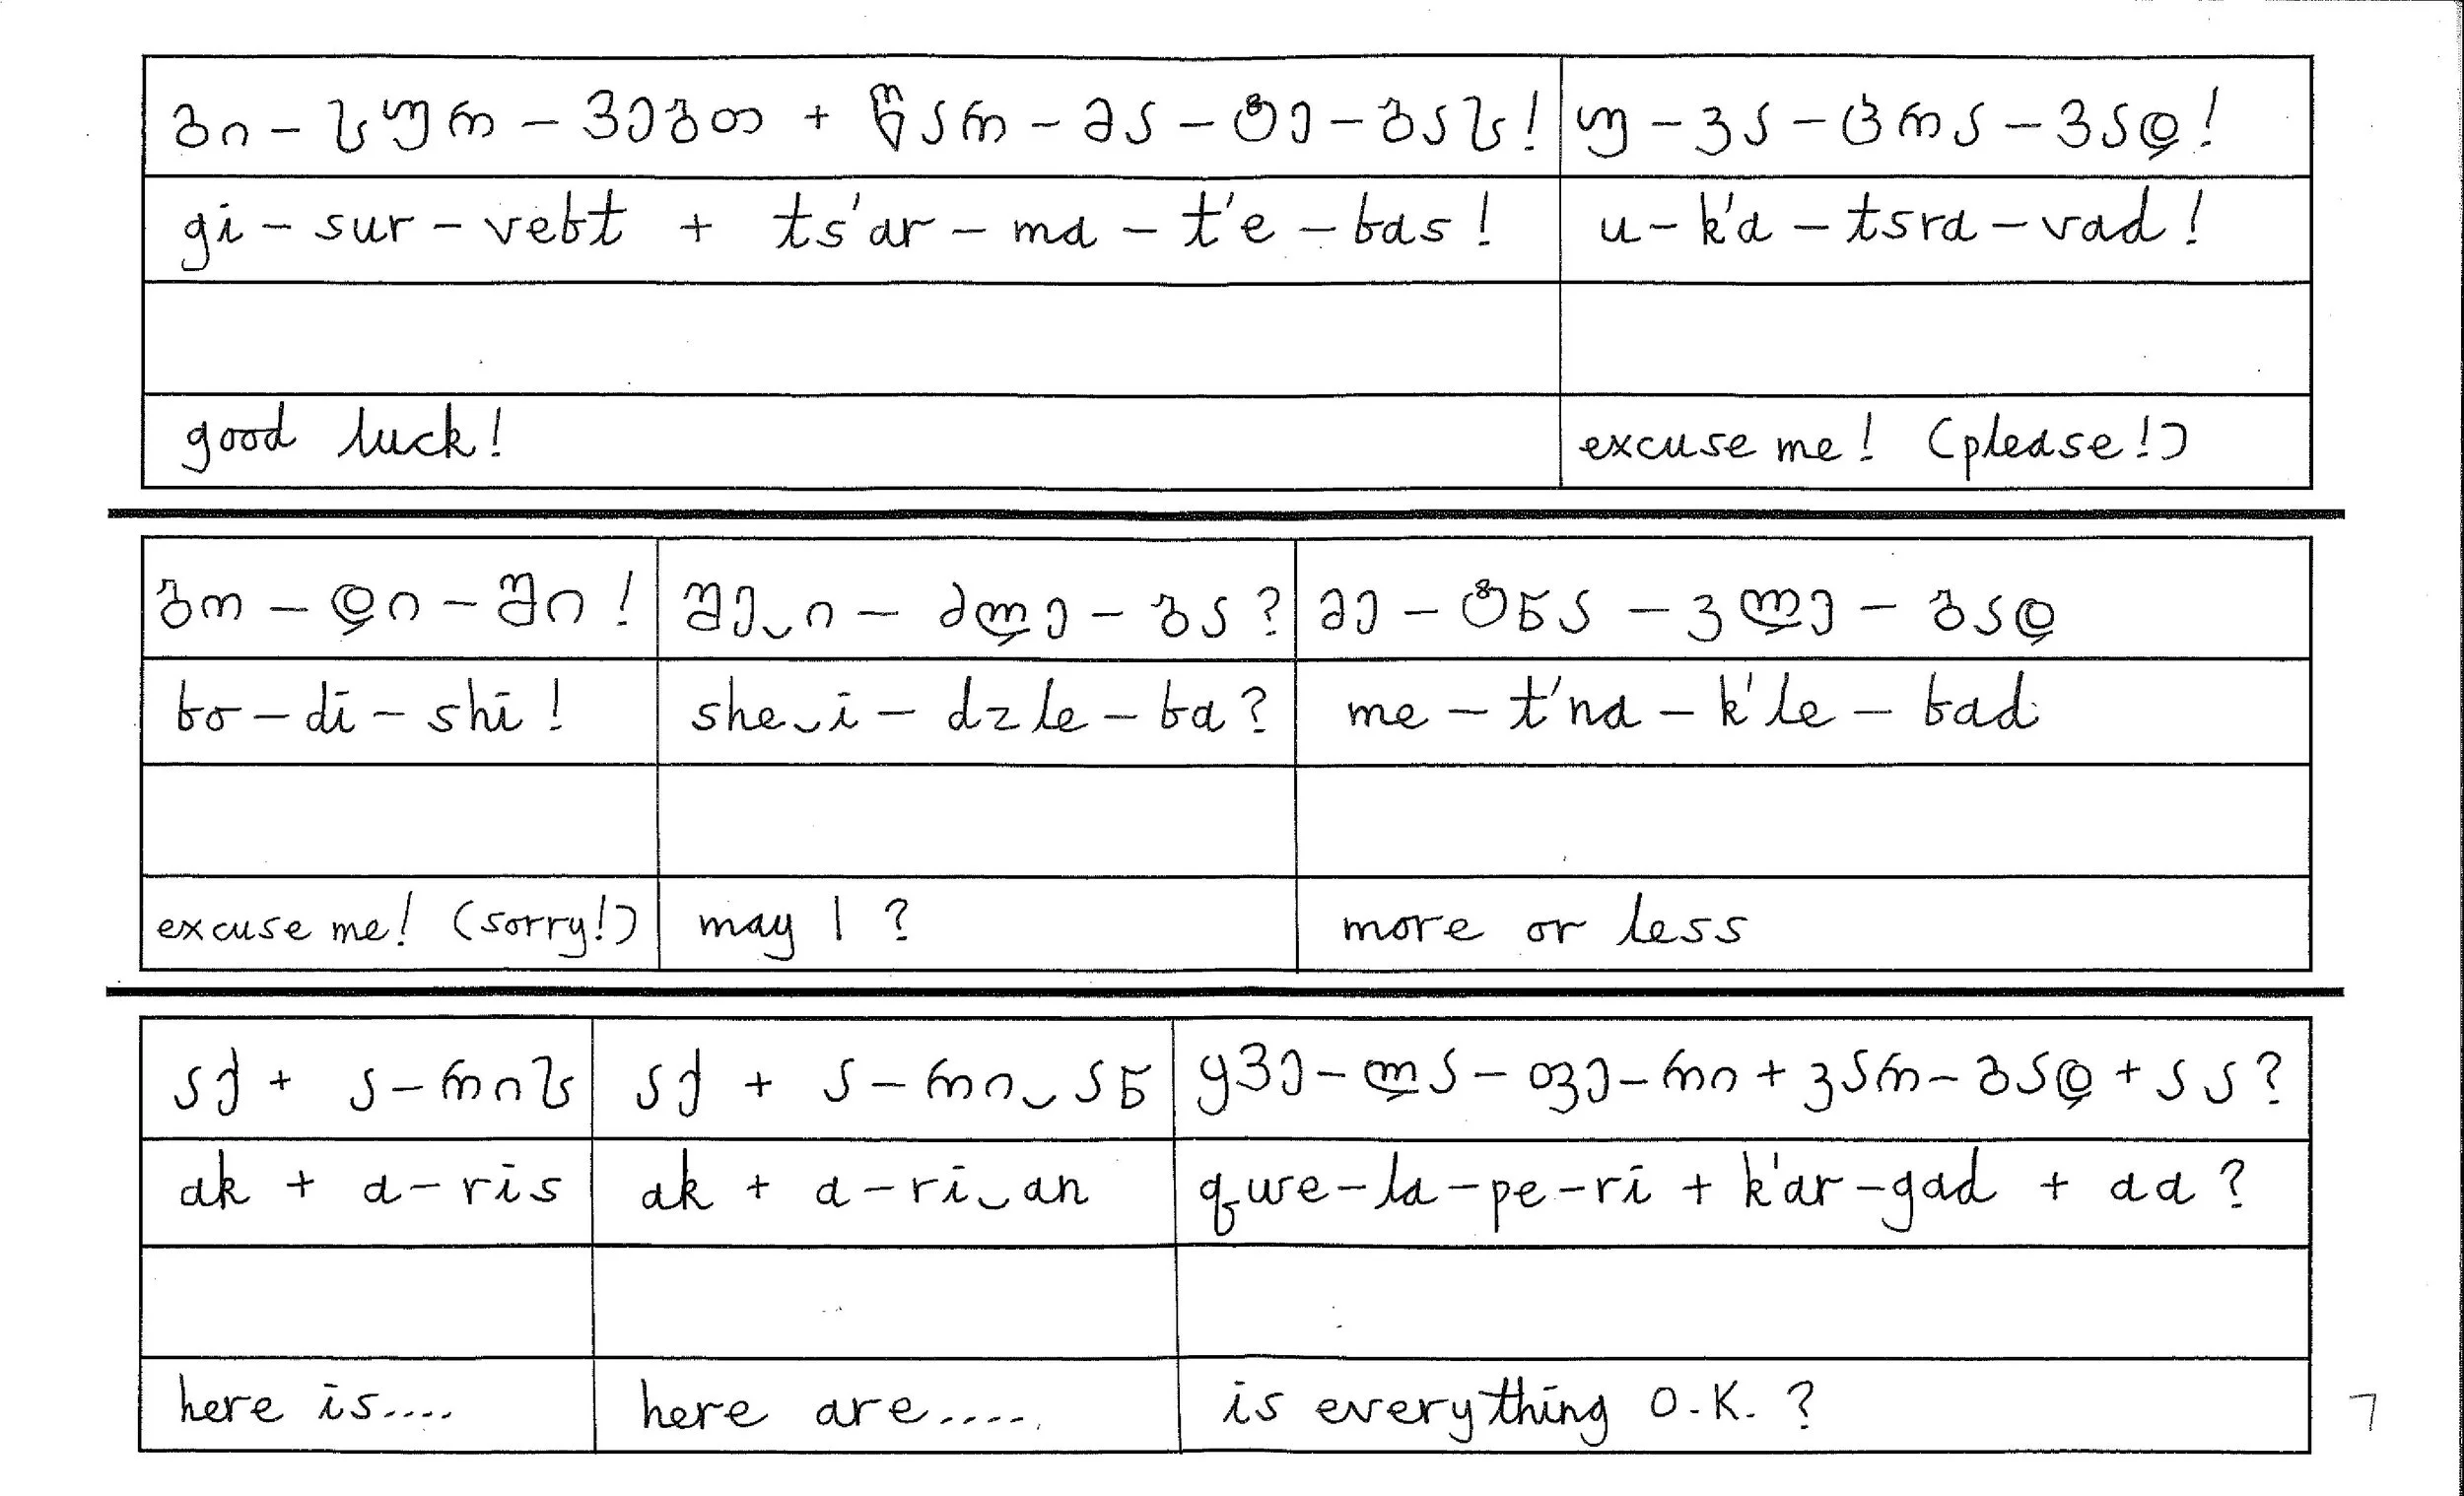 გი – სურ – ვებთ + წარ – მა – ტე – ბას! უ – კა – ცრა – ვად!
gi – sur – vebt + ts'ar – ma – t'e – bas! u – k'a – tsra – vad!
good luck! excuse me! (please!)
ბო – დი – ში! შე‿ი – ძლე – ბა? მე – ტნა – კლე – ბად
bo – di – shi! she‿i – dzle – ba? me – t'na – k'le – bad
excuse me! (sorry!) may I? more or less
აქ + ა – რის აქ + ა – რი‿ან ყვე – ლა – ფე – რი + კარ – გად + აა?
ak + a – ris ak + a – ri‿an qwe – la – pe – ri + k'ar – gad + aa?
here is.... here are.... is everything O.K.?
7